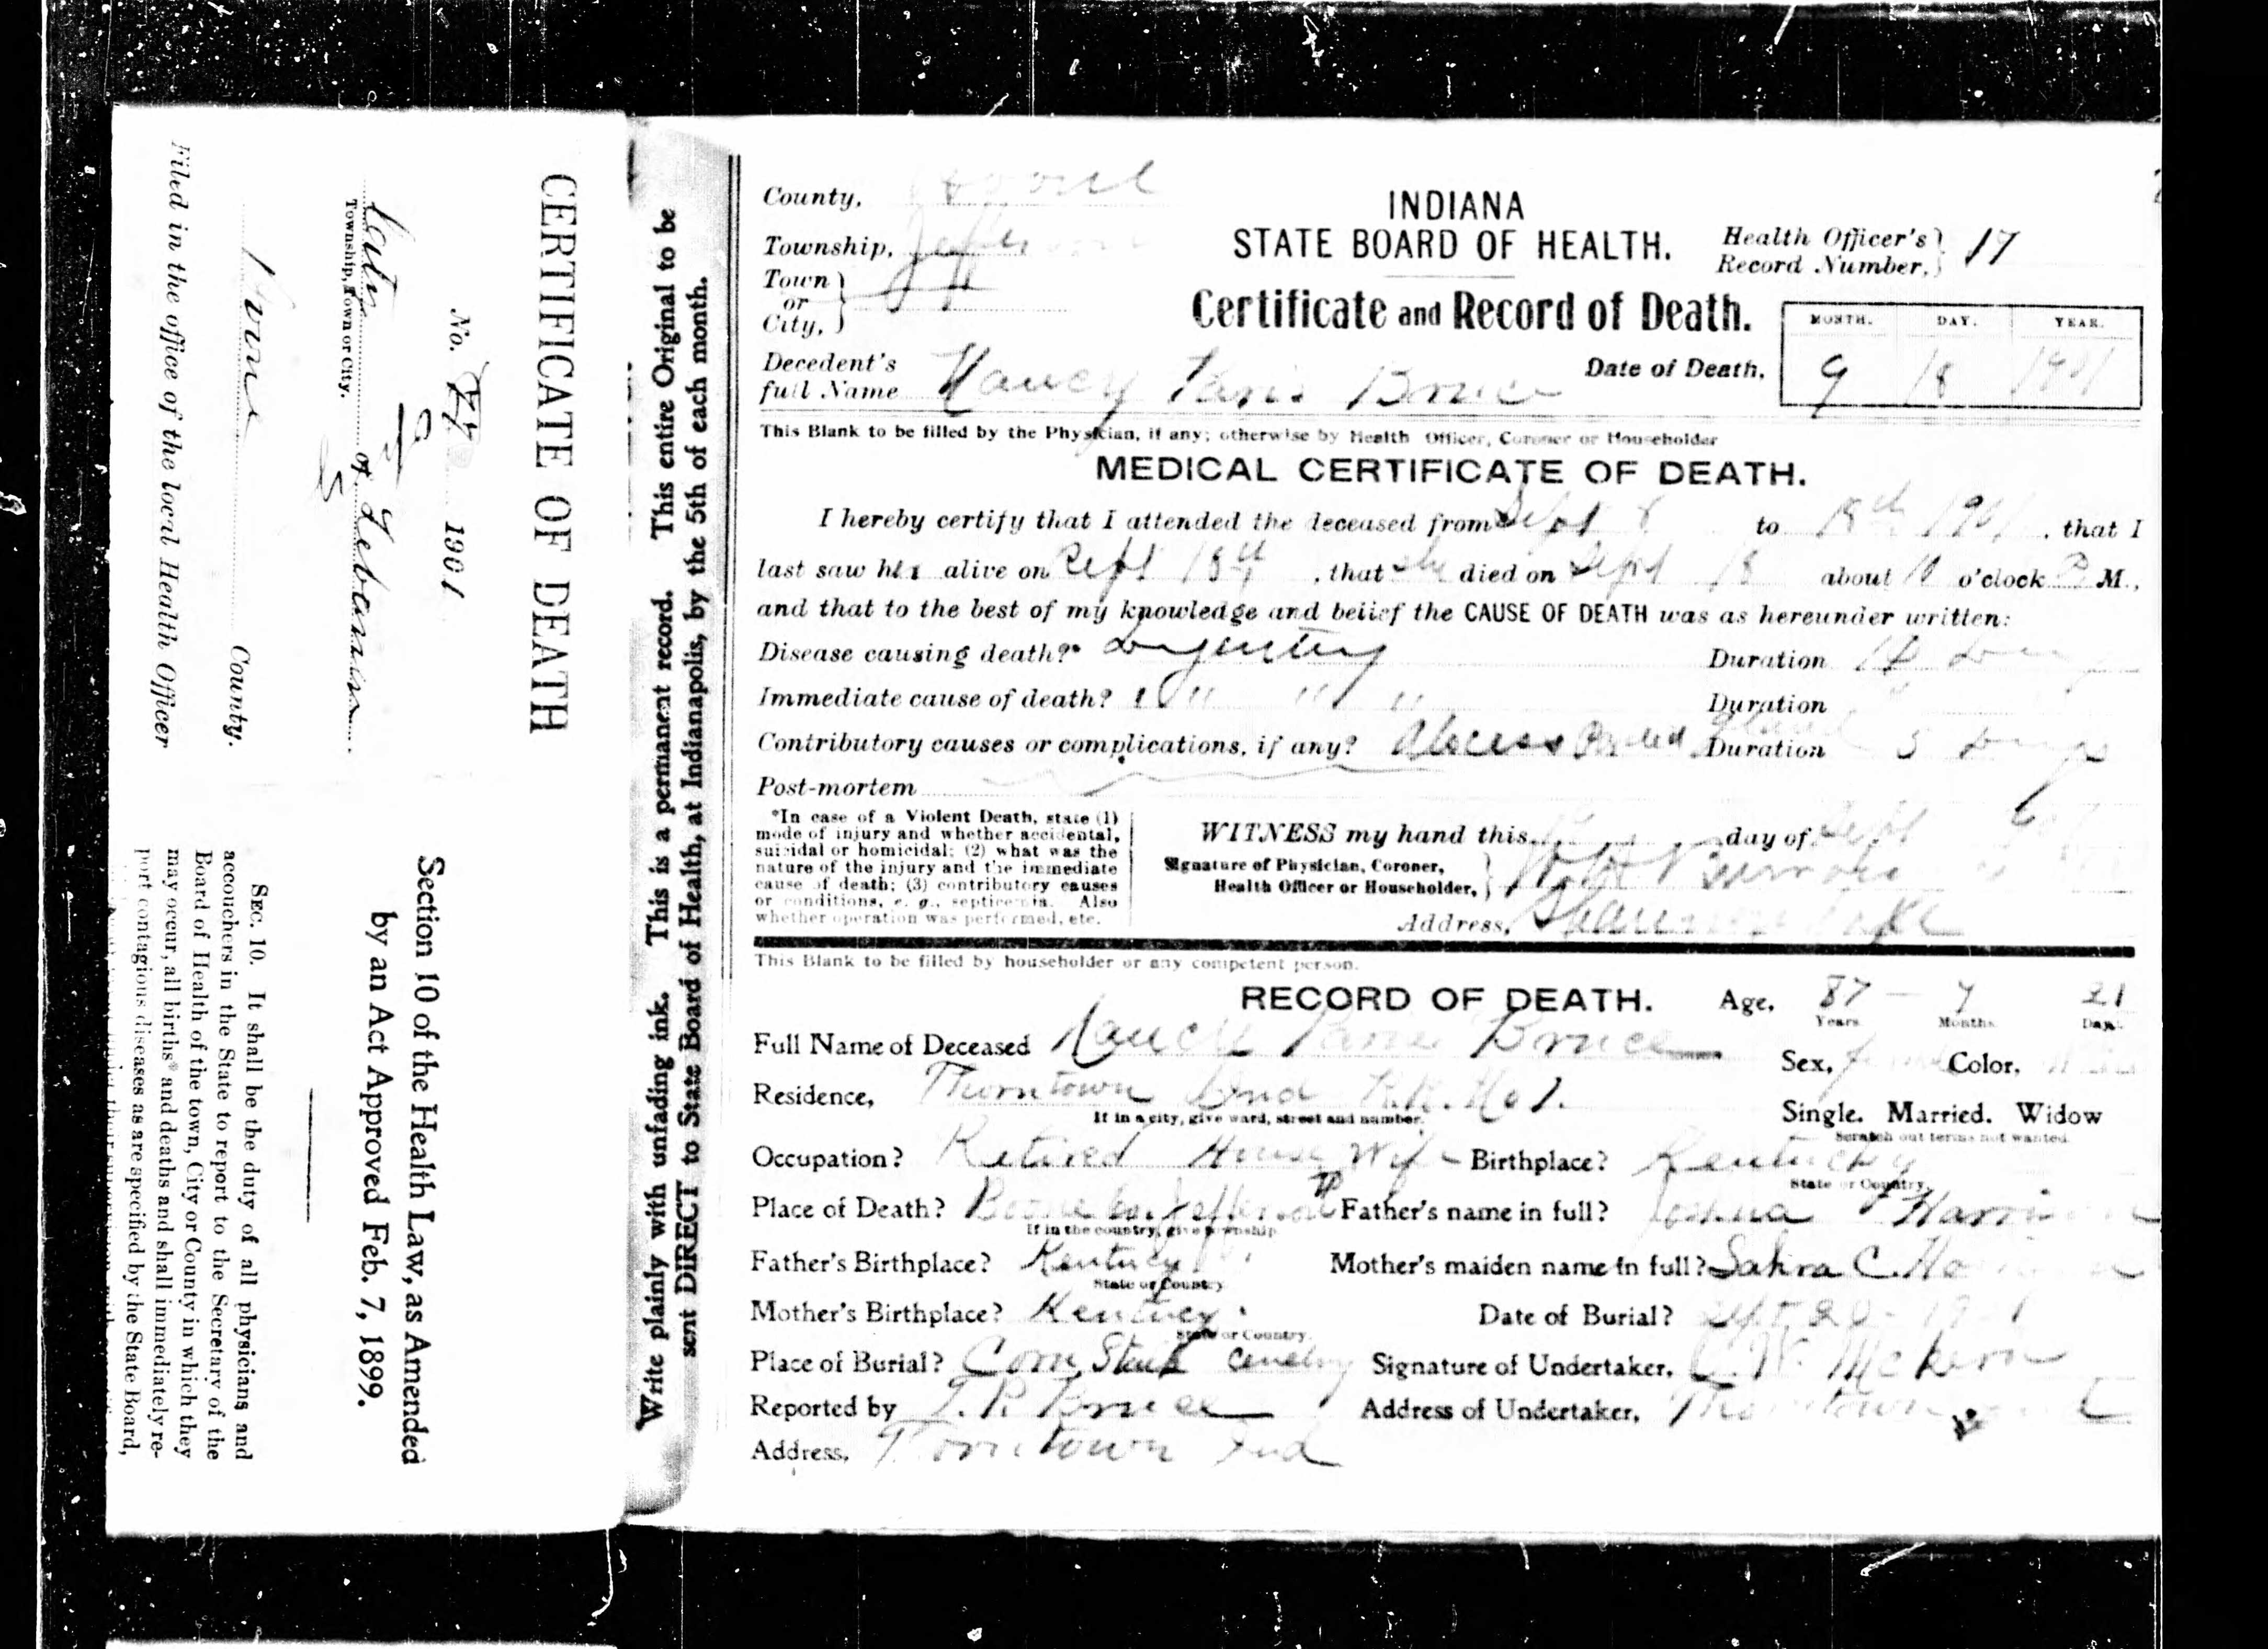 CERTIFICATE OF DEATH
No. 1901
of Lebanon
Township, Town or City.
County.
Filed in the office of the local Health Officer
Section 10 of the Health Law, as Amended
by an Act Approved Feb. 7, 1899.
SEC. 10. It shall be the duty of all physicians and
accouchers in the State to report to the Secretary of the
Board of Health of the town, City or County in which they
may occur, all births* and deaths and shall immediately re-
port contagious diseases as are specified by the State Board,
Write plainly with unfading ink. This is a permanent record. This entire Original to be
sent DIRECT to State Board of Health, at Indianapolis, by the 5th of each month.
County, Boone
Township, Jefferson
Town
or
City,
INDIANA
STATE BOARD OF HEALTH.
Health Officer's
Record Number, 17
Certificate and Record of Death.
Decedent's
full Name Nancy Bruce
Date of Death,
MONTH. DAY. YEAR.
9 18 1901
This Blank to be filled by the Physician, if any; otherwise by Health Officer, Coroner or Householder
MEDICAL CERTIFICATE OF DEATH.
I hereby certify that I attended the deceased from Sept 8 to 18th 1901, that I
last saw her alive on Sept 18th, that she died on Sept 18 about o'clock P M.,
and that to the best of my knowledge and belief the CAUSE OF DEATH was as hereunder written:
Disease causing death?* Dysentery Duration 14 Days
Immediate cause of death? " " " Duration
Contributory causes or complications, if any? Abcess Duration 5 Days
Post-mortem
*In case of a Violent Death, state (1)
mode of injury and whether accidental,
suicidal or homicidal; (2) what was the
nature of the injury and the immediate
cause of death; (3) contributory causes
or conditions, e. g., septicemia. Also
whether operation was performed, etc.
WITNESS my hand this day of Sept
Signature of Physician, Coroner,
Health Officer or Householder,
Address,
This Blank to be filled by householder or any competent person.
RECORD OF DEATH. Age, 87 - 7 21
Years Months Days
Full Name of Deceased Nancy Bruce
Sex, female Color,
Residence, Thorntown Ind R.R. No 1.
If in a city, give ward, street and number.
Single. Married. Widow
Scratch out terms not wanted.
Occupation? Retired House Wife Birthplace? Kentucky
State or Country.
Place of Death? Boone Co. Jefferson Tp Father's name in full? Joshua Harrison
If in the country, give township
Father's Birthplace? Kentucy Mother's maiden name in full? Sahra C.
State or Country
Mother's Birthplace? Kentucy Date of Burial? Sept 20 - 1901
State or Country.
Place of Burial? Corn Stalk Cemetry Signature of Undertaker, C. W. McKern
Reported by T. P. Bruce Address of Undertaker, Thorntown
Address, Thorntown Ind